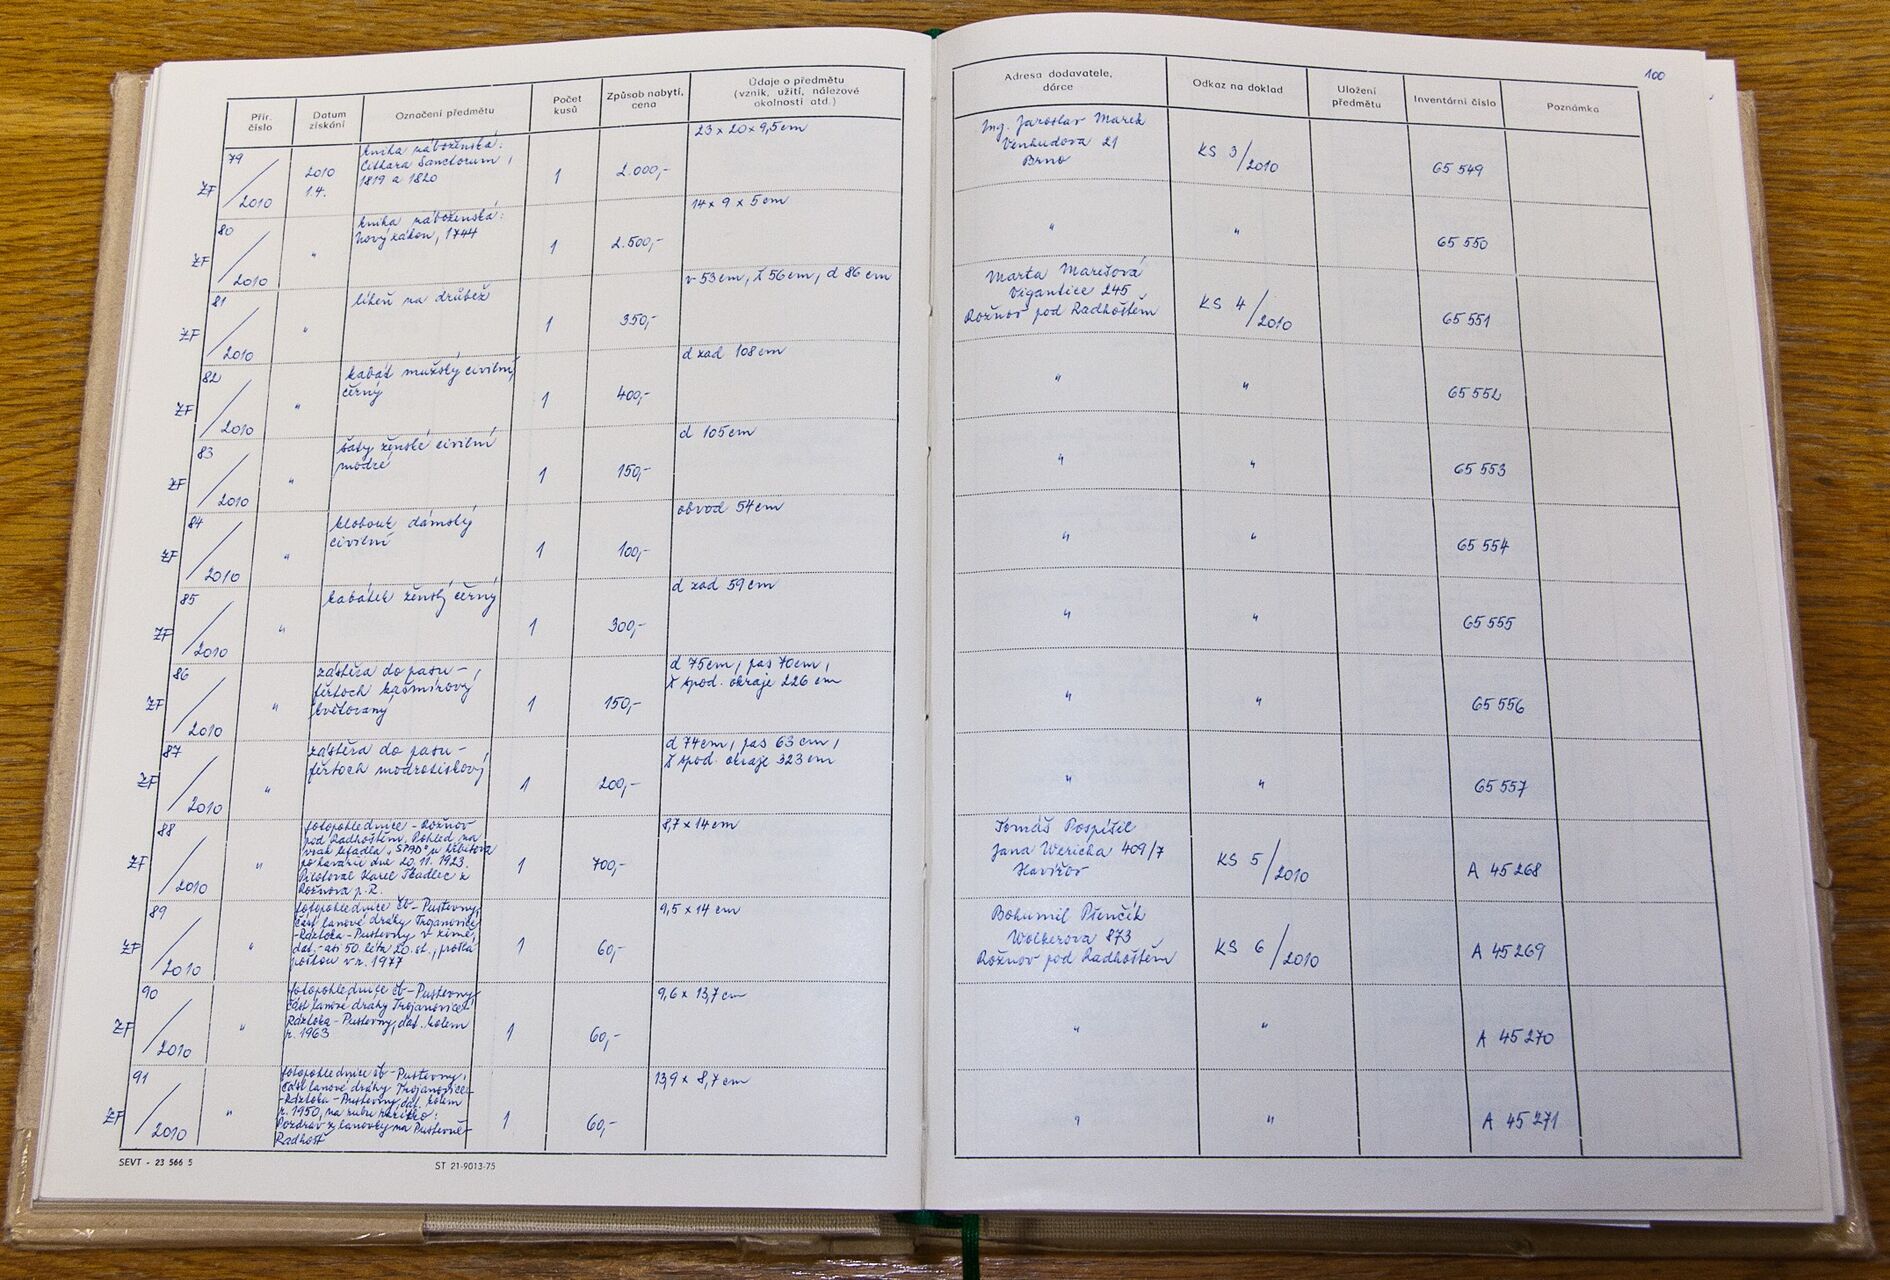 Přír. číslo
Datum získání
Označení předmětu
Počet kusů
Způsob nabytí, cena
Údaje o předmětu (vznik, užití, nálezové okolnosti atd.)
ŽF 79/2010
2010 1.4.
kniha náboženská:
Cithara Sanctorum,
1819 a 1820
1
2.000,-
23 x 20 x 9,5 cm
ŽF 80/2010
"
kniha náboženská:
Nový zákon, 1744
1
2.500,-
14 x 9 x 5 cm
ŽF 81/2010
"
líheň na drůbež
1
350,-
v 53 cm, š 56 cm, d 86 cm
ŽF 82/2010
"
kabát mužský civilní,
černý
1
400,-
d zad 108 cm
ŽF 83/2010
"
šaty ženské civilní
modré
1
150,-
d 105 cm
ŽF 84/2010
"
klobouk dámský
civilní
1
100,-
obvod 54 cm
ŽF 85/2010
"
kabátek ženský černý
1
300,-
d zad 59 cm
ŽF 86/2010
"
zástěra do pasu -
fěrtoch kašmírový
květovaný
1
150,-
d 75 cm, pas 70 cm,
š spod. okraje 226 cm
ŽF 87/2010
"
zástěra do pasu -
fěrtoch modrotiskový
1
200,-
d 74 cm, pas 63 cm,
š spod. okraje 323 cm
ŽF 88/2010
"
fotopohlednice - Rožnov
pod Radhoštěm. Pohled na
vrak letadla "SPAD" u hřbitova
po havárii dne 20.11.1923.
Pilotoval Karel Tkadlec z
Rožnova p.R.
1
700,-
8,7 x 14 cm
ŽF 89/2010
"
fotopohlednice čb - Pustevny,
část lanové dráhy Trojanovice
-Ráztoka - Pustevny v zimě,
dat. - asi 50. léta 20. st., prošlá
poštou v r. 1977
1
60,-
9,5 x 14 cm
ŽF 90/2010
"
fotopohlednice čb - Pustevny,
část lanové dráhy Trojanovice-
Ráztoka - Pustevny, dat. kolem
r. 1963
1
60,-
9,6 x 13,7 cm
ŽF 91/2010
"
fotopohlednice čb - Pustevny,
část lanové dráhy Trojanovice-
-Ráztoka - Pustevny, dat. kolem
r. 1950, na rubu razítko:
Pozdrav z lanovky na Pustevně-
Radhošť
1
60,-
13,9 x 8,7 cm
SEVT - 23 566 5
ST 21-9013-75
100
Adresa dodavatele, dárce
Odkaz na doklad
Uložení předmětu
Inventární číslo
Poznámka
Ing. Jaroslav Marek
Brno
KS 3/2010
65 549
"
"
65 550
Marta Marešová
Vigantice 245
Rožnov pod Radhoštěm
KS 4/2010
65 551
"
"
65 552
"
"
65 553
"
"
65 554
"
"
65 555
"
"
65 556
"
"
65 557
Tomáš Pospíšil
Jana Wericha 409/7
Havířov
KS 5/2010
A 45 268
Bohumil Pšenčík
Wolkerova 873
Rožnov pod Radhoštěm
KS 6/2010
A 45 269
"
"
A 45 270
"
"
A 45 271